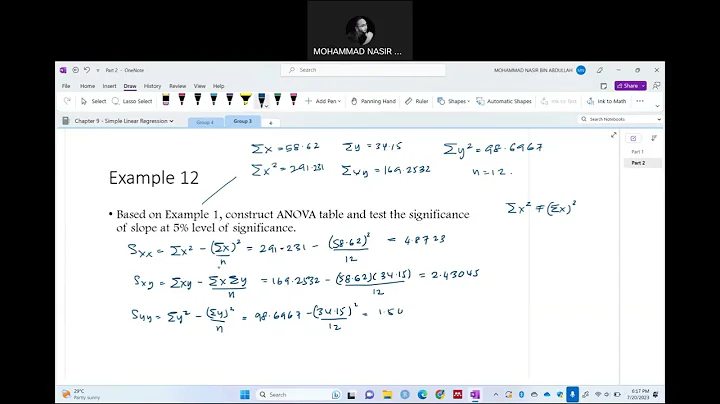 MOHAMMAD NASIR ...
Part 2 - OneNote
Search
MOHAMMAD NASIR BIN ABDULLAH
File Home Insert Draw History Review View Help
Share
Select Lasso Select Add Pen Panning Hand Ruler Shapes Automatic Shapes Ink to Text Ink to Math
Chapter 9 - Simple Linear Regression
Group 4
Group 3
Search Notebooks
Part 1
Part 2
Σx = 58.62 Σy = 34.15 Σy² = 98.6967
Σx² = 291.231 Σxy = 169.2532 n = 12.
Example 12
Σx² ≠ (Σx)²
• Based on Example 1, construct ANOVA table and test the significance
of slope at 5% level of significance.
Sxx = Σx² - (Σx)²/n = 291.231 - (58.62)²/12 = 4.8723
Sxy = Σxy - ΣxΣy/n = 169.2532 - (58.62)(34.15)/12 = 2.43045
Syy = Σy² - (Σy)²/n = 98.6967 - (34.15)²/12 = 1.50
29°C
Partly sunny
Search
6:17 PM
7/20/2023